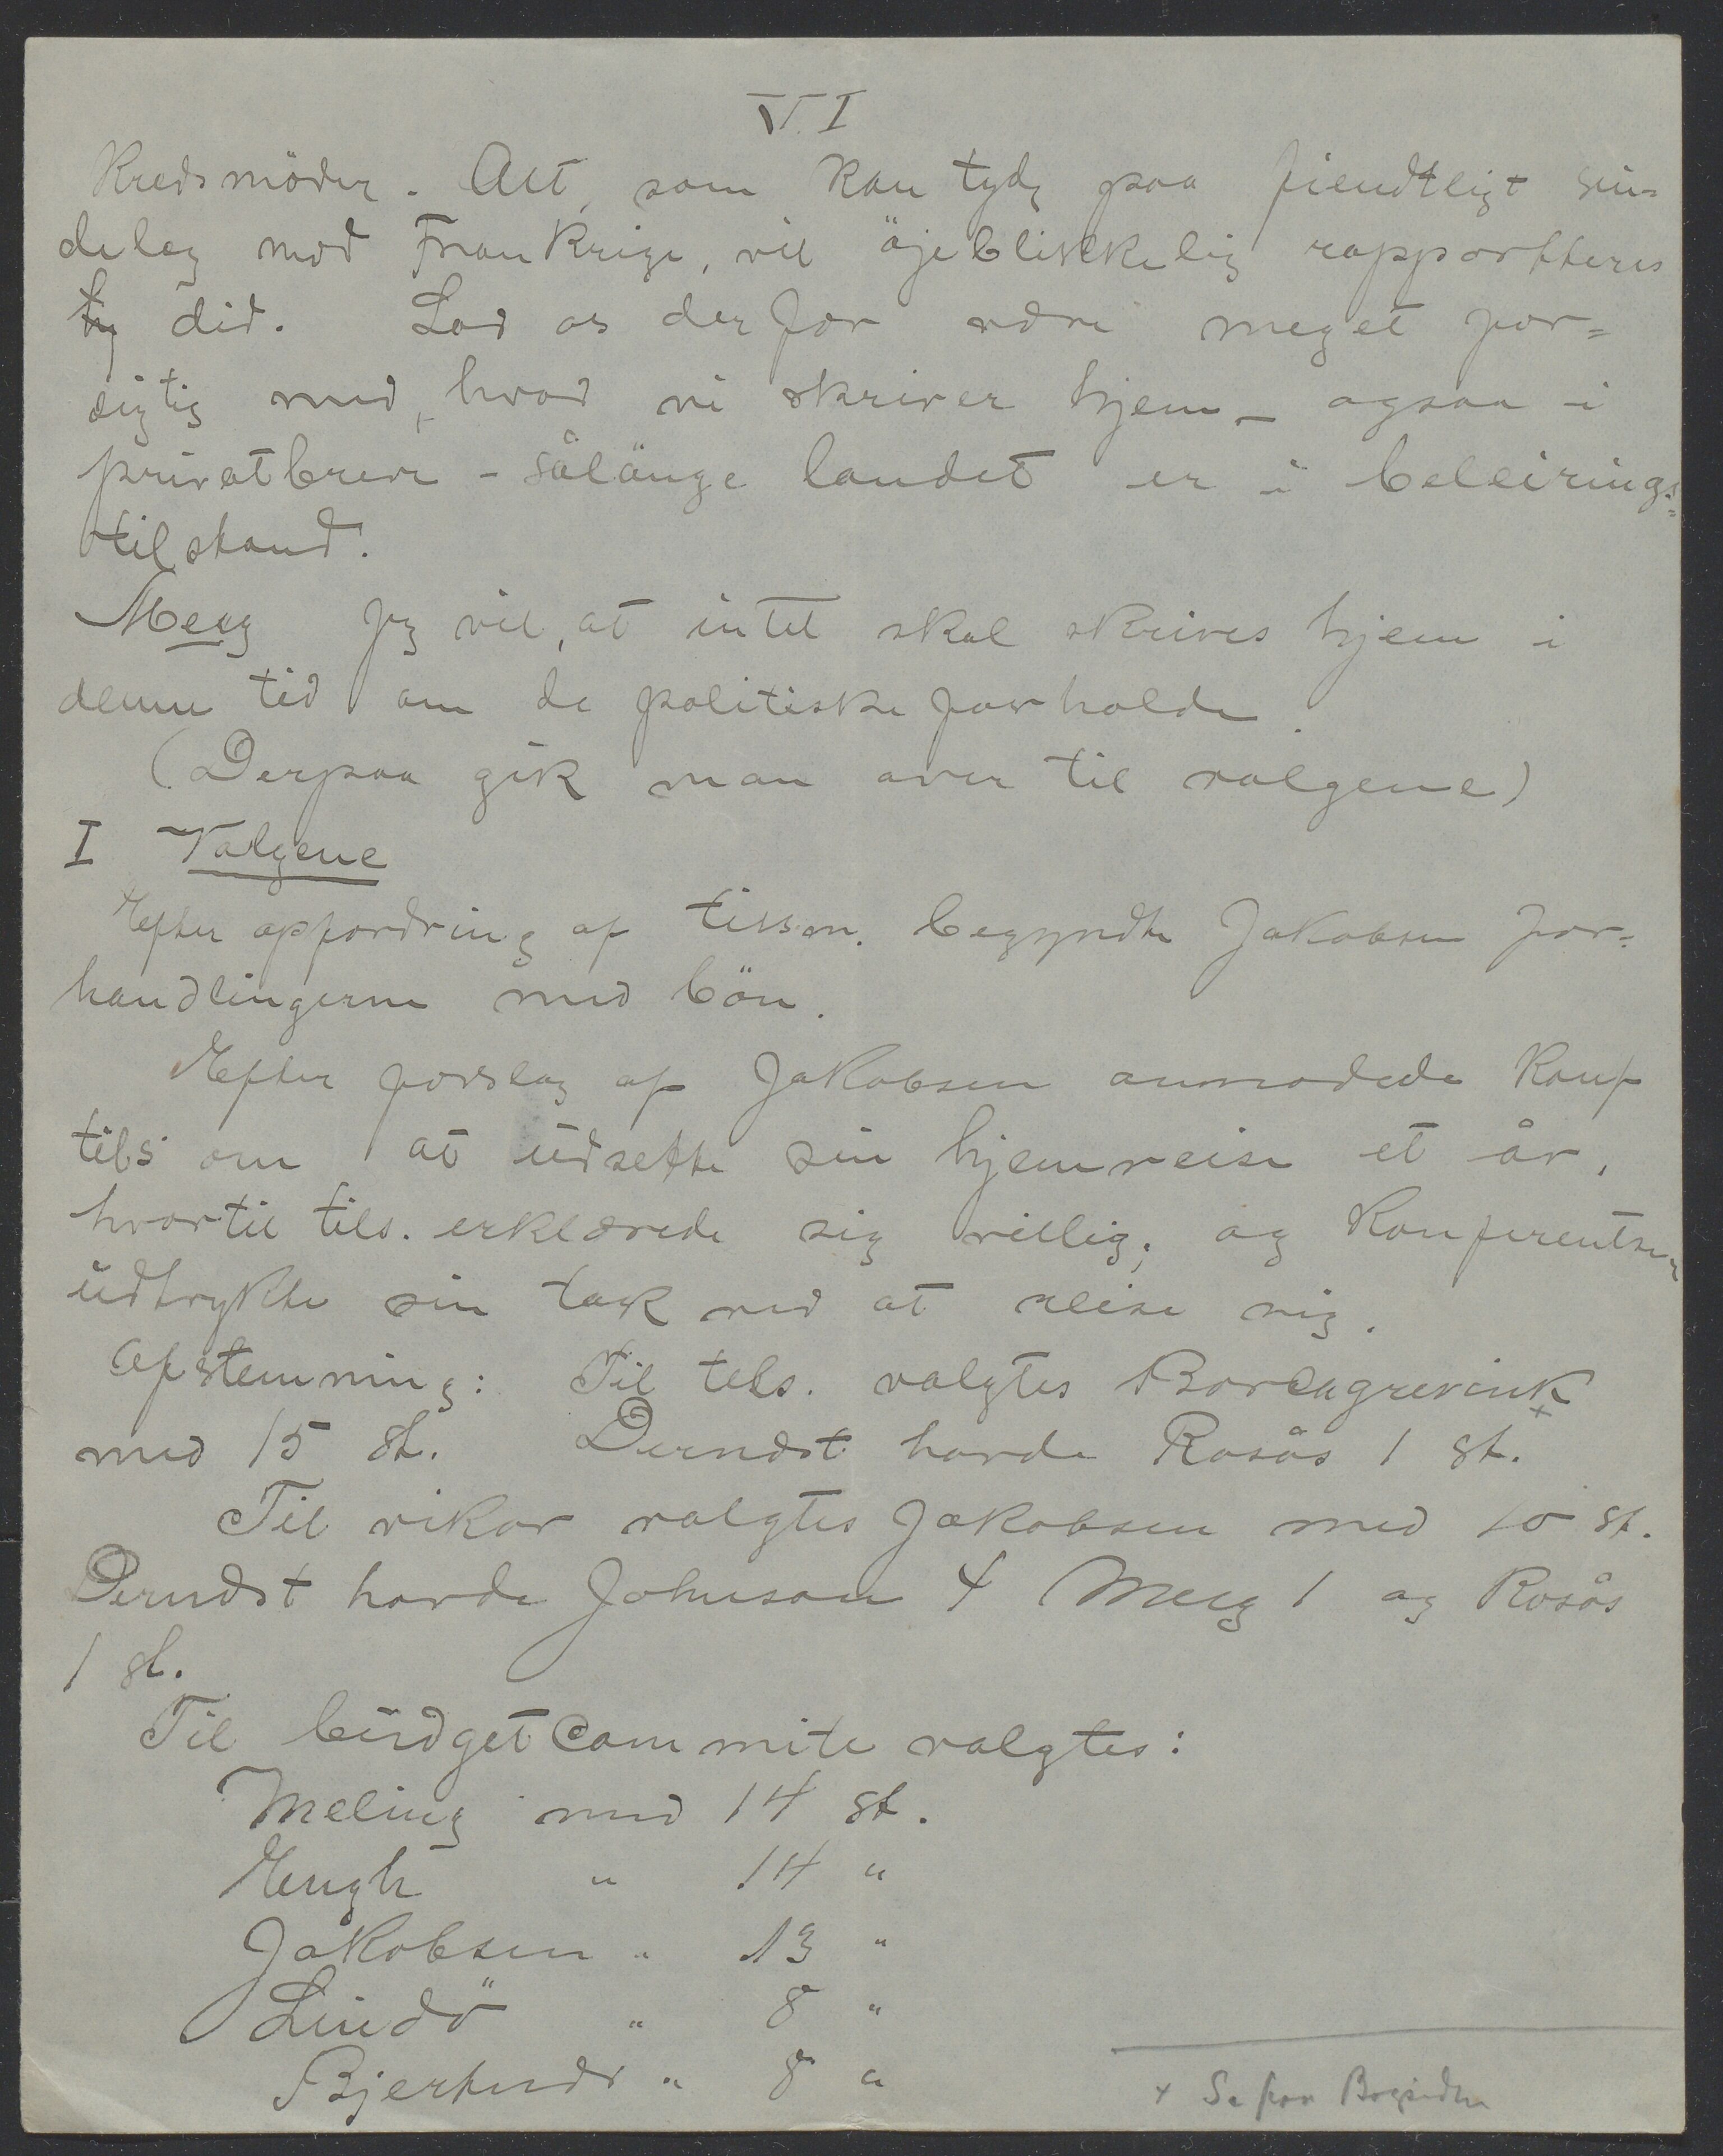 VI
Kredsmöder. Alt, som kan tyde paa fiendtligt sin=
delag mod Frankrige, vil öjeblikkelig rapportteres
did. Lad os derfor være meget for=
sigtig med, hvad vi skriver hjem – ogsaa i
privatbreve – sålänge landet er i beleirings=
tilstand.
Meeg Jeg vil, at intet skal skrives hjem i
denne tid om de politiske forholde.
(Derpaa gik man over til valgene)
I Valgene
Efter opfordring af tilsm. begyndte Jakobsen for=
handlingerne med bön.
Efter forslag af Jakobsen anmodede Konf
tils om at udsette sin hjemreise et år,
hvortil tils. erklærede sig villig; og Konferentsen
udtrykte sin tak ved at reise sig.
Afstemning: Til tils. valgtes Borchgrevink
+
med 15 st. Dernæst havde Rosås 1 st.
Til vikar valgtes Jakobsen med 10 st.
Dernæst havde Johnson 4 Meeg 1 og Rosås
1 st.
Til budgetCommite valgtes:
Meling med 14 st.
Engh " 14 "
Jakobsen " 13 "
Lindö " 8 "
Bjertnæs " 8 "
+ Se paa Bagsiden